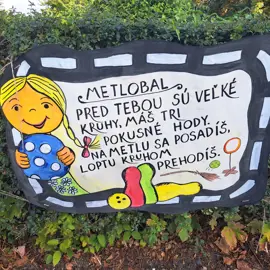 METLOBAL
PRED TEBOU SÚ VEĽKÉ
KRUHY, MÁŠ TRI
POKUSNÉ HODY.
NA METLU SA POSADÍŠ,
LOPTU KRUHOM
PREHODÍŠ.